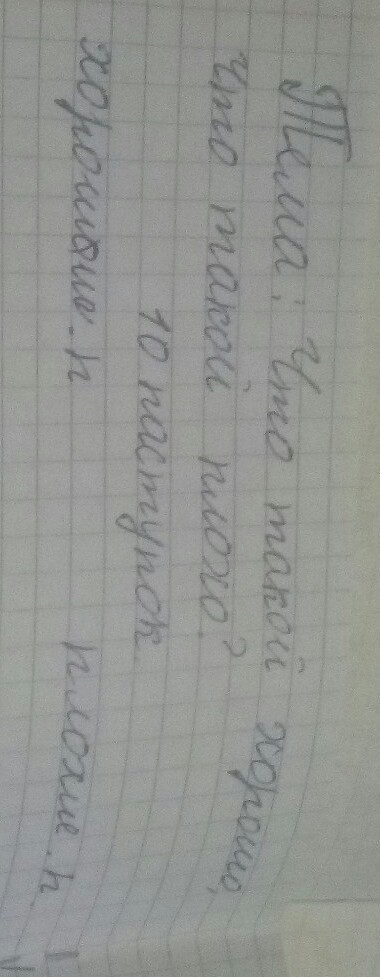 Тема: Что такой хорошо,
что такой плохо?
10 паступок
хорошие.п плохие.п